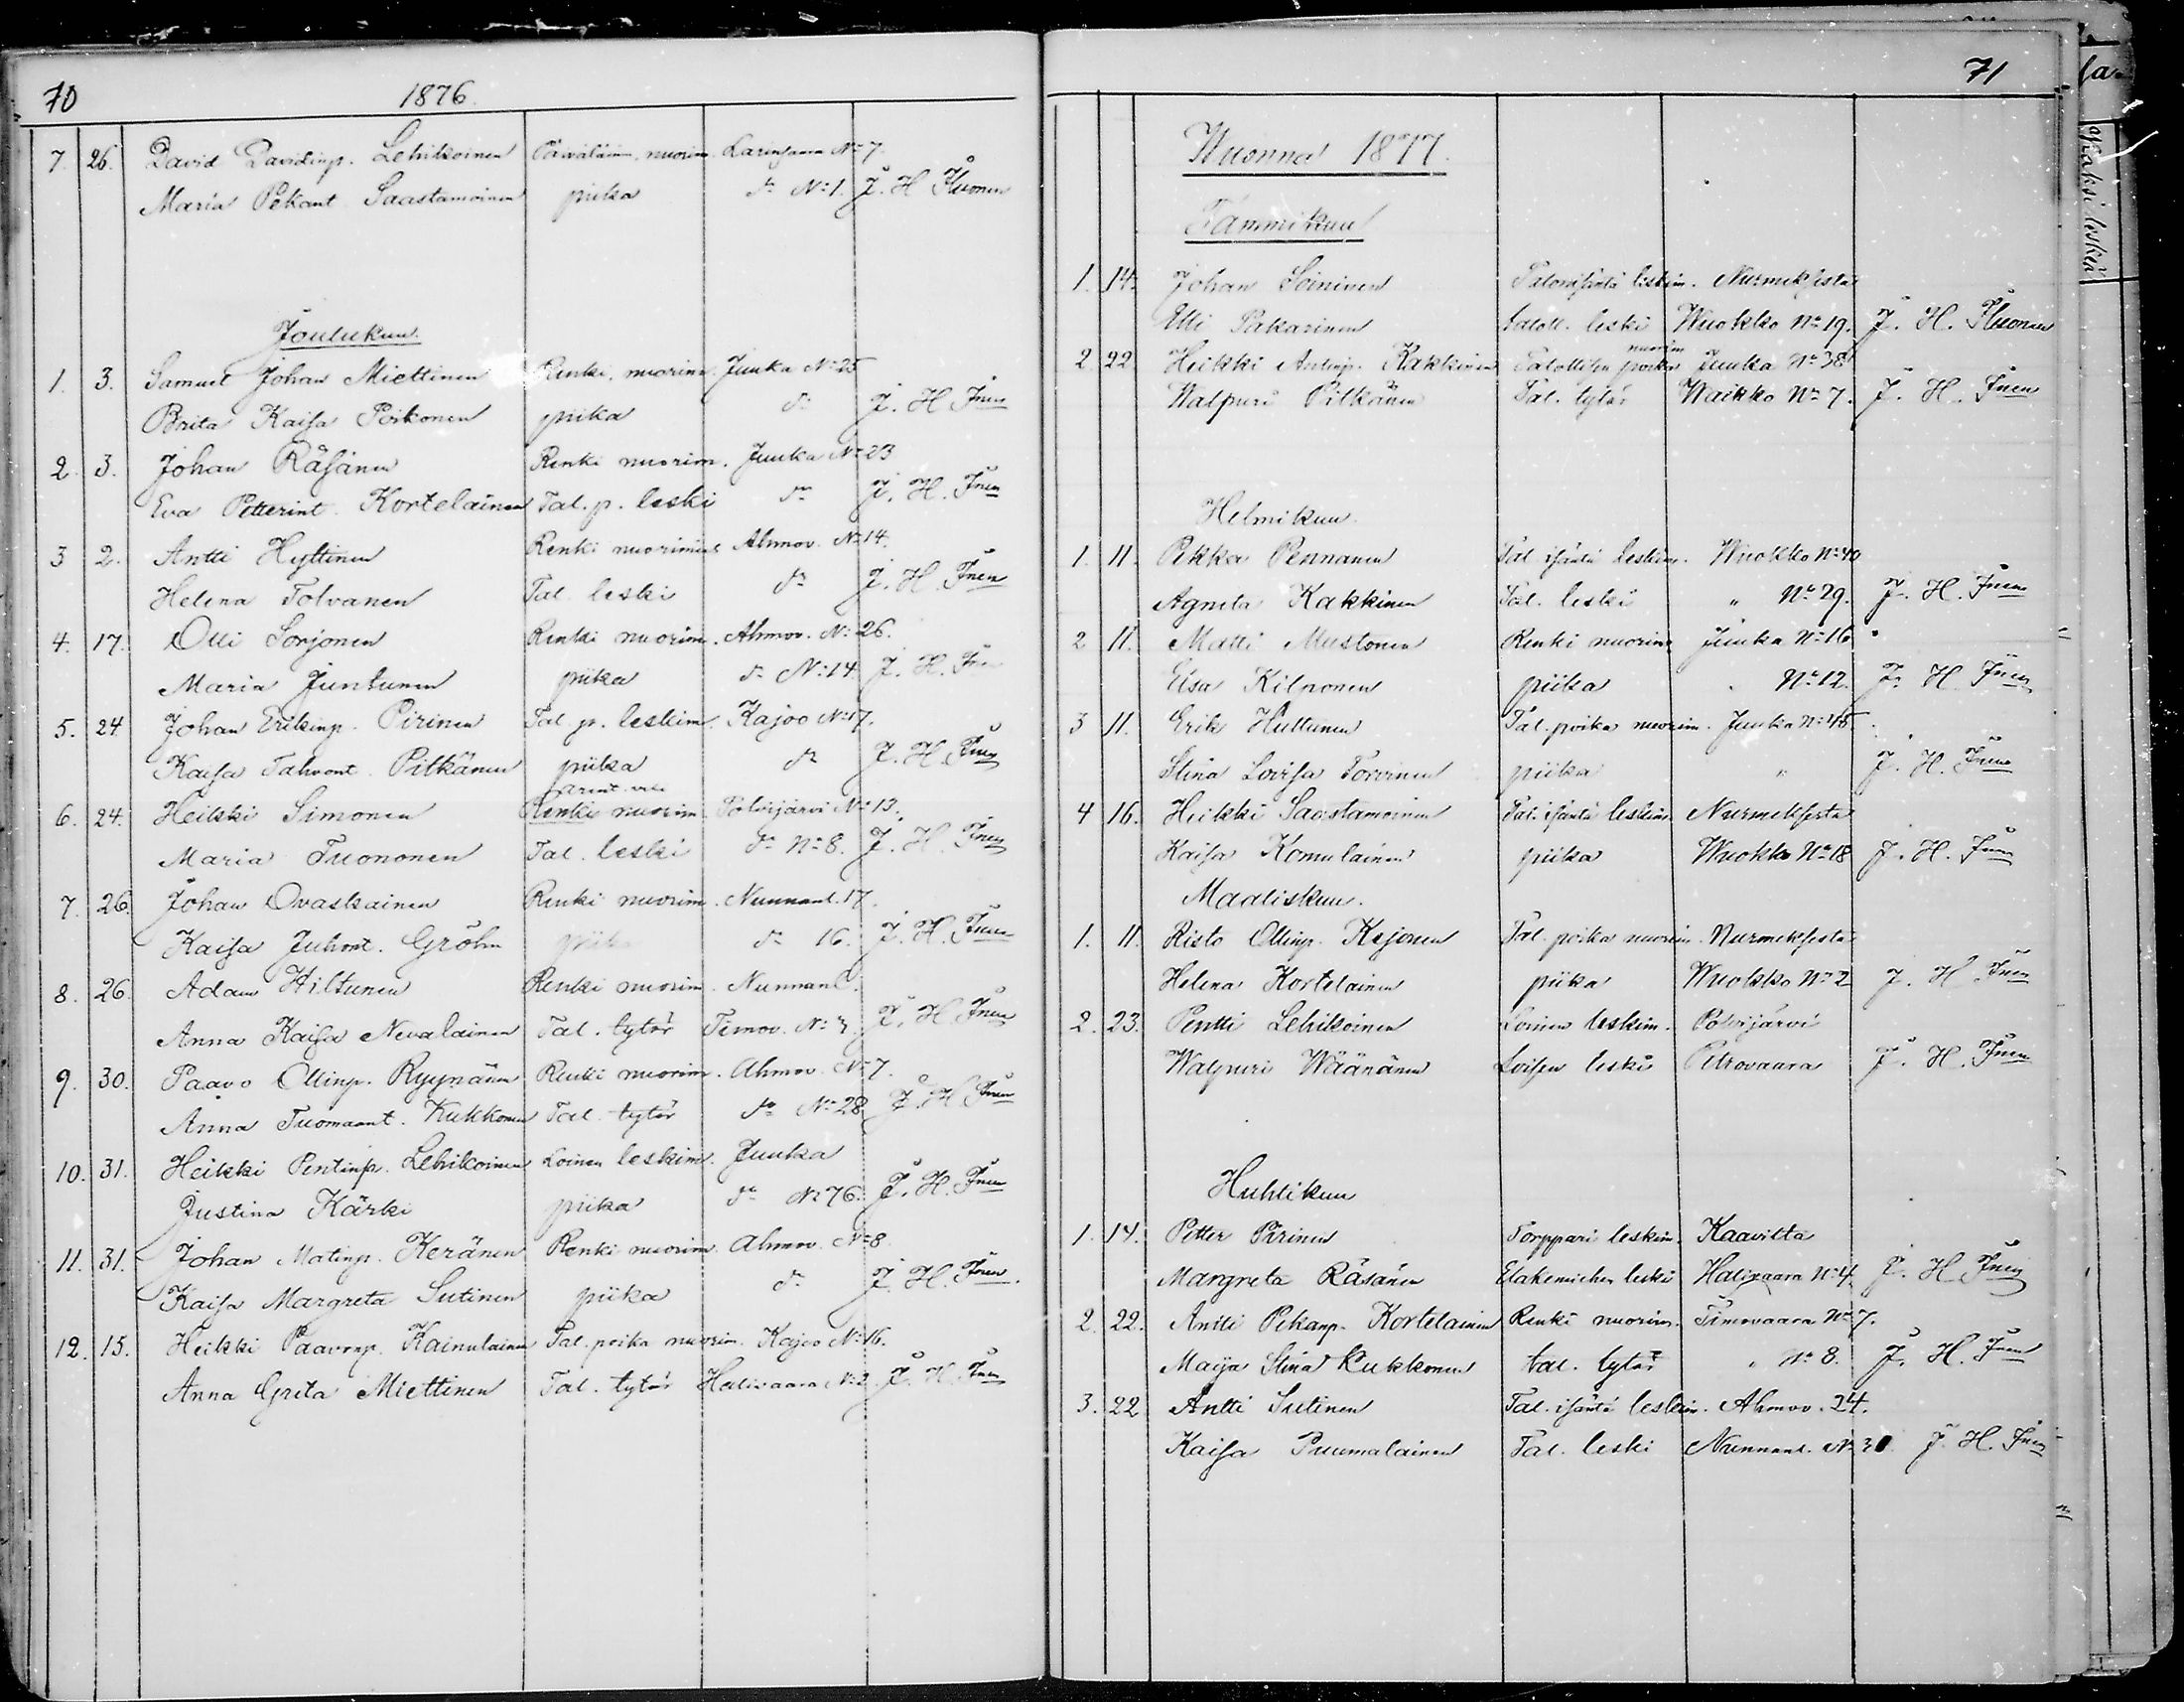 70
1876.
7. 26. David Davidinp. Lehikoinen nuorim. Larinsaari No 7.
Maria Pekant Saastamoinen piika do No 1. J. H.
Joulukuu.
1. 3. Samuel Johan Miettinen Renki, nuorim. Juuka No 25
Brita Kaisa Poikonen piika do J. H.
2. 3. Johan Räsänen Renki nuorim. Juuka No 23
Eva Petterint. Kortelainen Tal. p. leski do J. H.
3 2. Antti Hyttinen Renki nuorimies Ahmov. No 14.
Helena Tolvanen Tal. leski do J. H.
4. 17. Olli Sorjonen Renki nuorim. Ahmov. No 26.
Maria Juntunen piika do No 14. J. H.
5. 24 Johan Erikinp. Pirinen Tal. p. leskim. Kajoo No 17.
Kaisa Tahvont. Pitkänen piika do J. H.
6. 24. Heikki Simonen Renki nuorim. Polvijärvi No 13.
Maria Tuononen Tal. leski do No 8. J. H.
7. 26. Johan Ovaskainen Renki nuorim. Nunnanl. 17.
Kaisa Juhont. Gröhn piika do 16. J. H.
8. 26. Adam Hiltunen Renki nuorim. Nunnanl.
Anna Kaisa Nevalainen Tal. tytär Timov. No 3. J. H.
9. 30. Paavo Ollinp. Ryynänen Renki nuorim. Ahmov. No 7.
Anna Tuomaant. Kukkonen Tal. tytär do No 28 J. H.
10. 31. Heikki Pentinp. Lehikoinen Loinen leskim. Juuka
Justina Kärki piika do No 76. J. H.
11. 31. Johan Matinp. Keränen Renki nuorim. Ahmov. No 8.
Kaisa Margreta Sutinen piika do J. H.
12. 15. Heikki Paavonp. Kainulainen Tal. poika nuorim. Kajoo No 16.
Anna Greta Miettinen Tal. tytär Halivaara No 2. J. H.
71
Wuonna 1877.
Tammikuu
1. 14. Johan Soininen Talonisäntä leskim. Nurmeksesta
Elli Pakarinen taloll. leski Wuokko No 19. J. H.
nuorim
2 22. Heikki Antinp. Kakkinen Talollisen poika Juuka No 38
Walpuri Pitkänen Tal. tytär Waikko No 7. J. H.
Helmikuu.
1. 11. Pekka Pennanen Tal. isäntä leskim. Wuokko No 40
Agneta Kakkinen Tal. leski " No 29. J. H.
2 11. Matti Mustonen Renki nuorim Juuka No 16
Elsa Kilponen piika No 12. J. H.
3 11. Erik Huttunen Tal. poika nuorim. Juuka No 45.
Stina Lovisa Torvinen piika " J. H.
4 16. Heikki Saastamoinen Tal. isäntä leskim. Nurmeksesta
Kaisa Komulainen piika Wuokko No 18 J. H.
Maaliskuu.
1. 11. Risto Ollinp. Kejonen Tal. poika nuorim. Nurmeksesta
Helena Kortelainen piika Wuokko No 2 J. H.
2. 23. Pentti Lehikoinen Loinen leskim. Polvijärvi
Walpuri Wäänänen Loisen leski Petrovaara J. H.
Huhtikuu
1. 14. Petter Pirinen Torppari leskim. Kaavilta
Margreta Räsänen leski Halivaara No 4 J. H.
2. 22. Antti Pekanp. Kortelainen Renki nuorim. Timovaara No 7.
Maija Stina Kukkonen tal. tytär " No 8. J. H.
3. 22 Antti Sutinen Tal. isäntä leskim. Ahmov. 24.
Kaisa Puumalainen Tal. leski Nunnanl. J. H.
leskeä